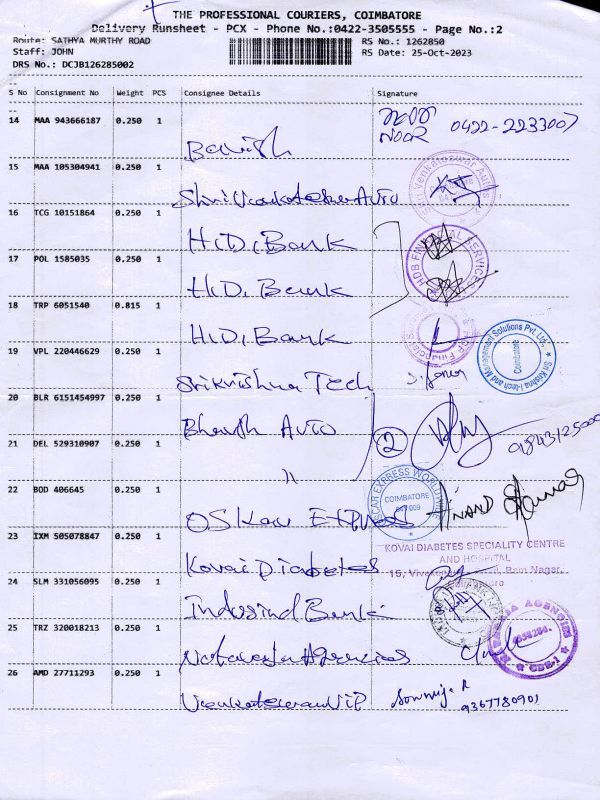 THE PROFESSIONAL COURIERS, COIMBATORE
Delivery Runsheet - PCX - Phone No.:0422-3505555 - Page No.:2
Route: SATHYA MURTHY ROAD
Staff: JOHN
DRS No.: DCJB126285002
RS No.: 1262850
RS Date: 25-Oct-2023
S No Consignment No Weight PCS Consignee Details Signature
14 MAA 943666187 0.250 1
NOOR 0422-2233007
15 MAA 105304941 0.250 1
Shri Venkateswar Auto
16 TCG 10151864 0.250 1
H.D. Bank
HDB FINANCIAL SERVICES
17 POL 1585035 0.250 1
H.D. Bank
18 TRP 6051540 0.815 1
H.D. Bank
Sri Krishna I-tech and Management Solutions Pvt. Ltd.
Coimbatore
19 VPL 220446629 0.250 1
Srikrishna Tech
20 BLR 6151454997 0.250 1
Bharath Auto
2
21 DEL 529310907 0.250 1
"
22 BOD 406645 0.250 1
OSkar Express
OSCAR EXPRESS WORLDWIDE
COIMBATORE
641 009
23 IXM 505078847 0.250 1
Kovai Diabetes
KOVAI DIABETES SPECIALITY CENTRE
AND HOSPITAL
Ram Nagar,
24 SLM 331056095 0.250 1
Indusind Bank
25 TRZ 320018213 0.250 1
Nataraja Agencies
26 AMD 27711293 0.250 1
Sowmiya R
9367780901